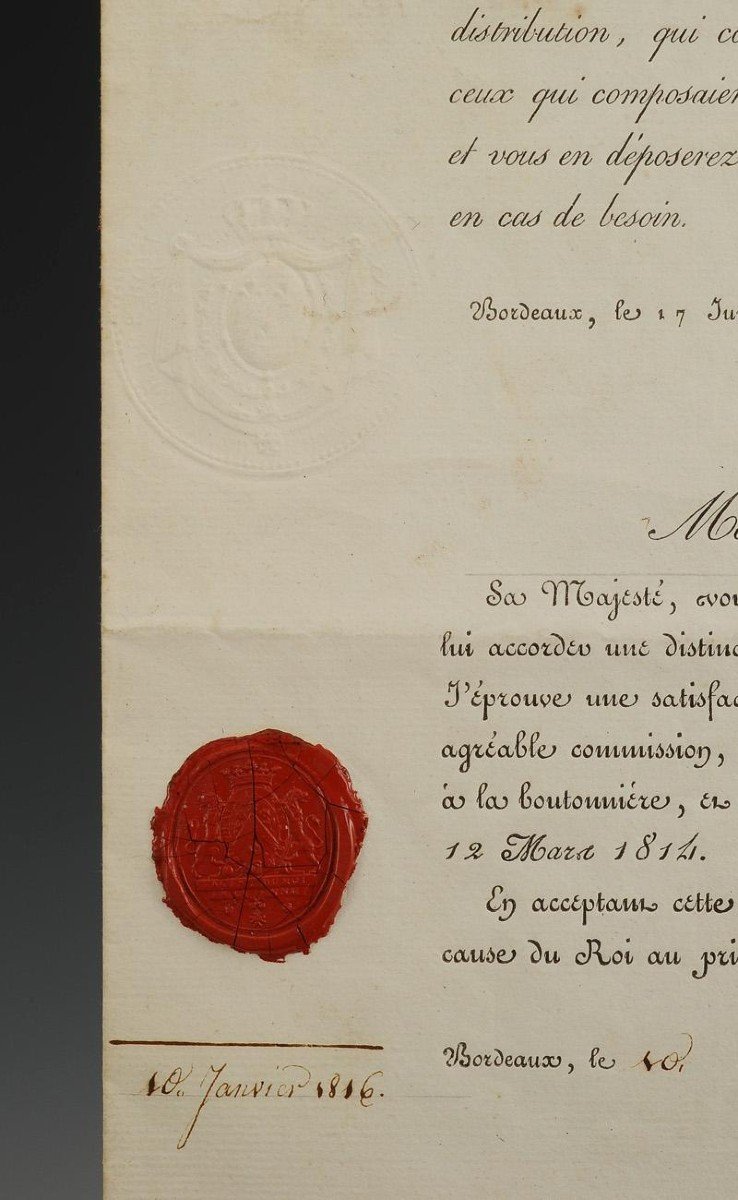 distribution, qui co
ceux qui composaien
et vous en déposerez
en cas de besoin.
Bordeaux, le 17 Ju
Sa Majesté, vou
lui accorder une distinc
J'éprouve une satisfac
agréable commission,
à la boutonnière, et
12 Mars 1814.
En acceptant cette
cause du Roi au pri
Bordeaux, le 10.
10. Janvier 1816.